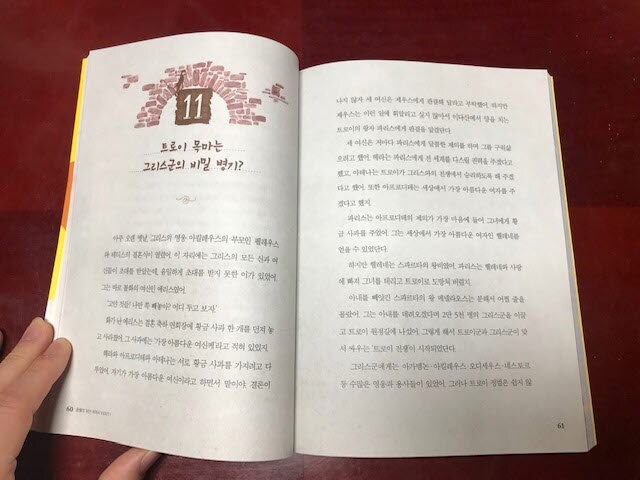 11
트로이 목마는
그리스군의 비밀 병기?
아주 오랜 옛날, 그리스의 영웅 아킬레우스의 부모인 펠레우스
와 테티스의 결혼식이 열렸어. 이 자리에는 그리스의 모든 신과 여
신들이 초대를 받았는데, 유일하게 초대를 받지 못한 이가 있었어.
그는 바로 불화의 여신인 에리스였어.
'고얀 것들! 나만 쏙 빼놓아? 어디 두고 보자.'
화가 난 에리스는 결혼 축하 연회장에 황금 사과 한 개를 던져 놓
고 사라졌어. 그 사과에는 '가장 아름다운 여신께'라고 적혀 있었지.
헤라와 아프로디테와 아테나는 서로 황금 사과를 가지려고 다
투었어. 자기가 가장 아름다운 여신이라고 하면서 말이야. 결론이
60
나지 않자 세 여신은 제우스에게 판결해 달라고 부탁했어. 하지만
제우스는 이런 일에 휘말리고 싶지 않아서 이다산에서 양을 치는
트로이의 왕자 파리스에게 판결을 맡겼단다.
세 여신은 저마다 파리스에게 달콤한 제의를 하며 그를 구워삶
으려고 했어. 헤라는 파리스에게 전 세계를 다스릴 권력을 주겠다고
했고, 아테나는 트로이가 그리스와의 전쟁에서 승리하도록 해 주겠
다고 했어. 또한 아프로디테는 세상에서 가장 아름다운 여자를 주
겠다고 했지.
파리스는 아프로디테의 제의가 가장 마음에 들어 그녀에게 황
금 사과를 주었어. 그는 세상에서 가장 아름다운 여자인 헬레네를
얻을 수 있었단다.
하지만 헬레네는 스파르타의 왕비였어. 파리스는 헬레네와 사랑
에 빠져 그녀를 데리고 트로이로 도망쳐 버렸지.
아내를 빼앗긴 스파르타의 왕 메넬라오스는 분해서 어쩔 줄을
몰랐어. 그는 아내를 데려오겠다며 2만 5천 명의 그리스군을 이끌
고 트로이 원정길에 나섰어. 그렇게 해서 트로이군과 그리스군이 맞
서 싸우는 '트로이 전쟁'이 시작되었단다.
그리스군에게는 아가멤논·아킬레우스·오디세우스·네스토르
등 수많은 영웅과 용사들이 있었어. 그러나 트로이 정벌은 쉽지 않
61